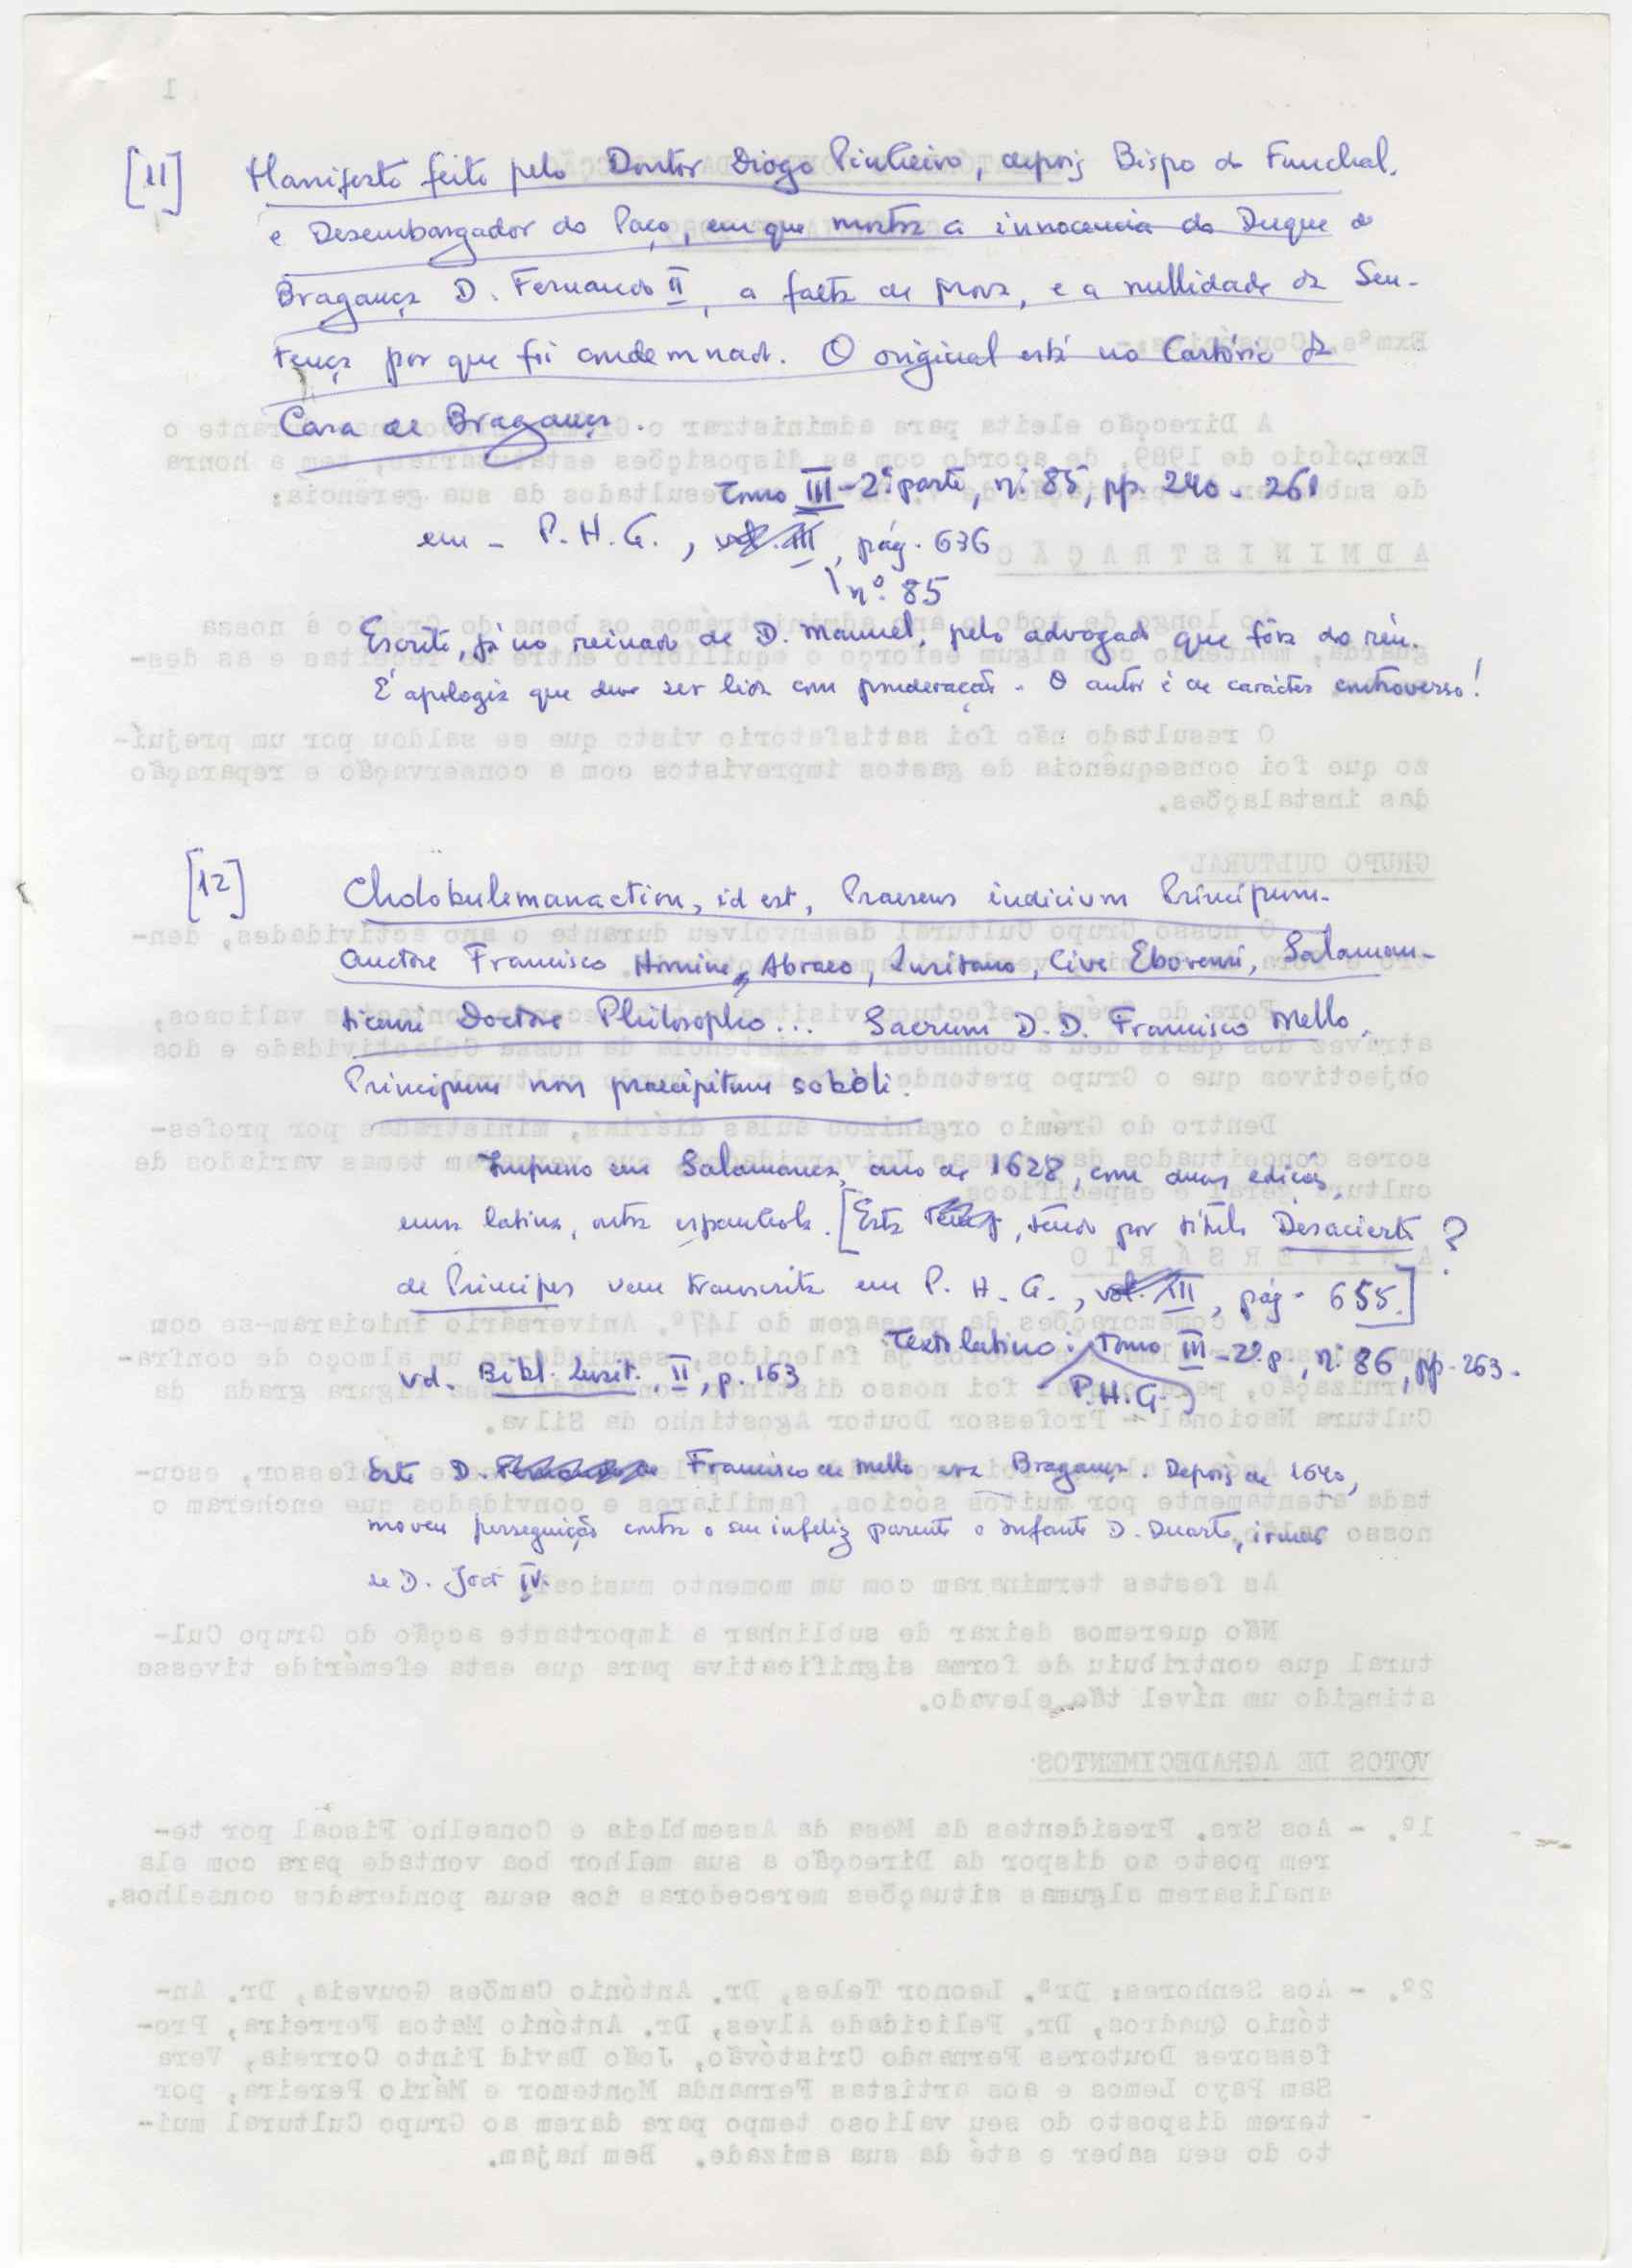 [11] Manifesto feito pelo Doutor Diogo Pinheiro, depois Bispo do Funchal,
e Desembargador do Paço, em que mostra a innocencia do Duque de
Bragança D. Fernando II, a falta de prova, e a nullidade da Sen-
tença por que foi condemnado. O original está no Cartório da
Casa de Bragança.
Tomo III - 2ª parte, nº 85, pp. 240 - 261
em - P. H. G., vol. III, pág. 636
nº 85
Escrito, já no reinado de D. Manuel, pelo advogado que fôra do réu.
É apologia que deve ser lida com ponderação. O autor é de carácter controverso!
[12] Cholobulemanaction, id est, Praesens iudicium Principum.
Auctore Francisco Homine, Abraeo, Lusitano, Cive Eborensi, Salaman-
ticensi Doctore Philosopho... Sacrum D. D. Francisco Mello,
Principum non praecipitum soboli.
Impresso em Salamanca, ano de 1628, com duas edições,
uma latina, outra espanhola. [Esta , tendo por título Desacierto ?
de Principes vem transcrita em P. H. G., vol. III, pág. 655.]
Texto latino: Tomo III - 2ª p., nº 86, pp. 263.
P.H.G.
vd. Bibl. Lusit., II, p. 163
Este D. Francisco de Mello era Bragança. Depois de 1640,
moveu perseguição contra o seu infeliz parente o Infante D. Duarte, irmão
de D. João IV.